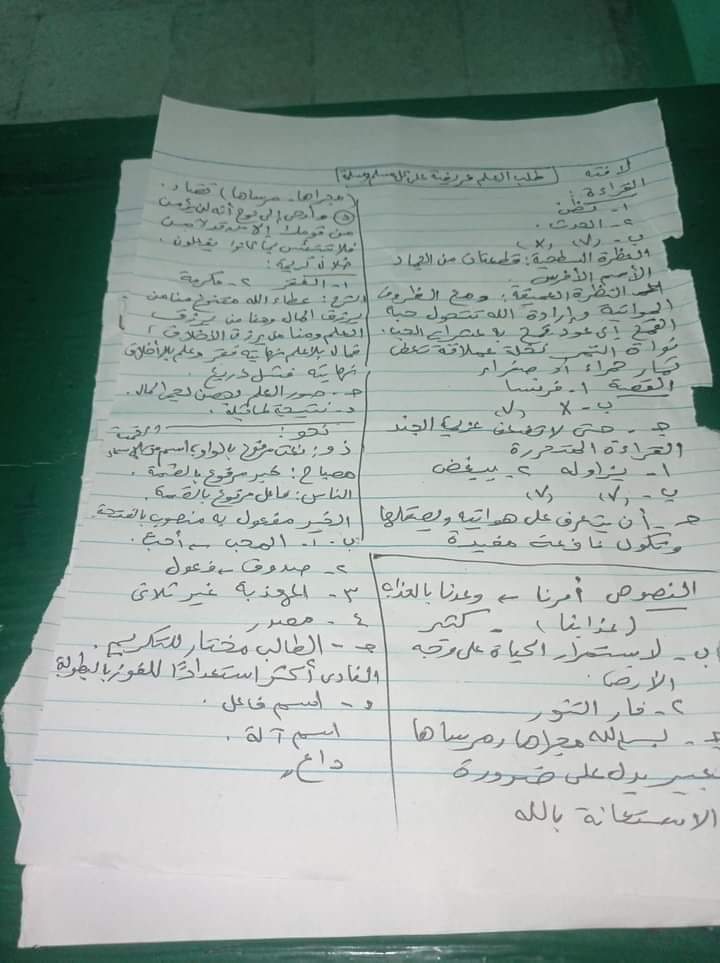 لافته
طلب العلم فريضة على كل مسلم ومسلمة
القراءة:
١- تخفض
٢- الحدث.
ب- (√) (×)
النظرة السطحية: قطعتان من الجماد
الأصم الأخرس
النظرة العميقة: ومع الظروف
المواتية وإرادة الله تتحول حبة
القمح إلى عود قمح به عشرات الحب.
نواة التمر نخلة عملاقة تعطى
ثمار حمراء أو صفراء
القصة ١- فرنسا
ب- × (√)
جـ- حتى لا تضعف عزيمة الجند
القراءة المتحررة
١- يزاوله ٢- يبغض
ب- (√) (√)
جـ- أن يتعرف على هواتيه ويصقلها
وتكون نافعة مفيدة
النصوص أمرنا ← وعدنا بالعذاب
(عذابنا) - كثير
ب- لاستمرار الحياة على وجه
الأرض.
٢- فار التنور
جـ- بسم الله مجراها ومرساها
تعبير يدل على ضرورة
الاستعانة بالله
(مجراها - مرساها) تضاد.
وأوحى إلى نوح أنه لن يؤمن
من قومك إلا من قد آمن
فلا تبتئس بما كانوا يفعلون.
خلال كريمة:
١- الفقر ٢- مكرمة
الشرح: عطاء الله متنوع منا من
يرزق المال ومنا من يرزق
العلم ومنا من يرزق الأخلاق،
فمال بلا علم نهايته فقر وعلم بلا أخلاق
نهايته فشل ذريع.
جـ- صور العلم بحصن يحمى المال.
د- نتيجة لما قبله.
نحو:
ذو: نعت مرفوع بالواو اسم من الأسماء الخمسة
مصباح: خبر مرفوع بالضمة.
الناس: فاعل مرفوع بالضمة.
الخير مفعول به منصوب بالفتحة
ب- ١. المحب ← أحب.
٢- صدوق ← فعول
٣- المهذبة غير ثلاثى
٤- مصدر
جـ- الطالب مختار للتكريم.
النادى أكثر استعدادًا للفوز بالبطولة
د- اسم فاعل.
اسم آلة.
داعٍ